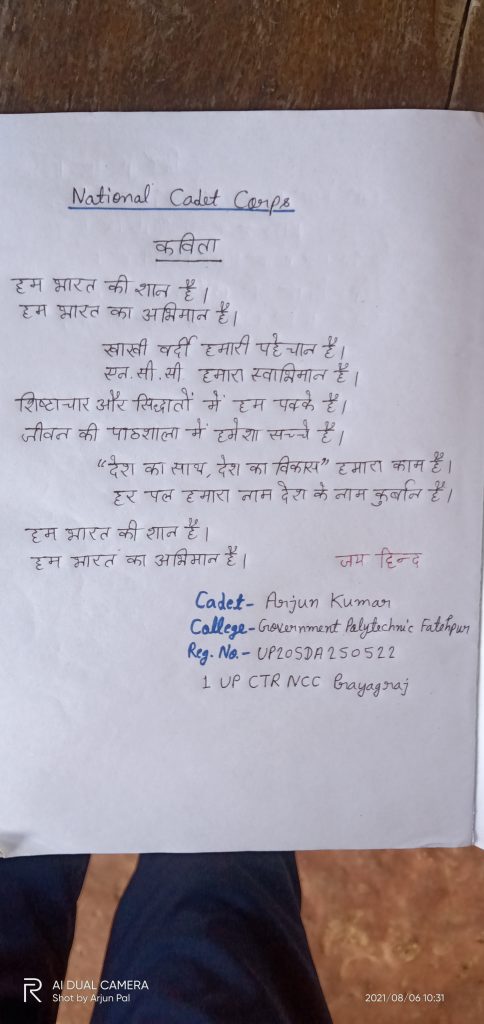 National Cadet Corps
कविता
हम भारत की शान है।
हम भारत का अभिमान है।
खाखी वर्दी हमारी पहेचान है।
एन.सी.सी. हमारा स्वाभिमान है।
शिष्टाचार और सिद्धातों में हम पक्के है।
जीवन की पाठशाला में हमेशा सच्चे है।
“देश का साथ, देश का विकास” हमारा काम है।
हर पल हमारा नाम देश के नाम कुर्बान है।
हम भारत की शान है।
हम भारत का अभिमान है। जय हिन्द
Cadet- Arjun Kumar
College- Government Polytechnic Fatehpur
Reg. No.- UP20SDA250522
1 UP CTR NCC Prayagraj
AI DUAL CAMERA
Shot by Arjun Pal 2021/08/06 10:31